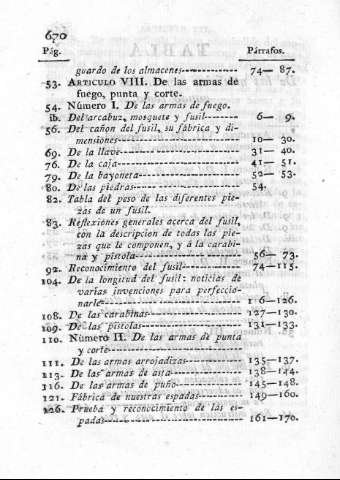 670
Pág. Párrafos.
guardo de los almacenes 74— 87.
53. ARTICULO VIII. De las armas de
fuego, punta y corte.
54. Número I. De las armas de fuego.
ib. Del arcabuz, mosquete y fusil 6— 9.
56. Del cañon del fusil, su fábrica y di-
mensiones 10— 30.
69. De la llave 31— 40.
76. De la caja 41— 51.
79. De la bayoneta 52— 53.
80. De las piedras 54.
82. Tabla del peso de las diferentes pie-
zas de un fusil.
83. Reflexiones generales acerca del fusil,
con la descripcion de todas las pie-
zas que le componen, y á la carabi-
na y pistola 56— 73.
92. Reconocimiento del fusil 74—115.
104. De la longitud del fusil: noticias de
varias invenciones para perfeccio-
narle 116—126.
108. De las carabinas 127—130.
109. De las pistolas 131—133.
110. Número II. De las armas de punta
y corte
111. De las armas arrojadizas 135—137.
113. De las armas de asta 138—144.
116. De las armas de puño 145—148.
121. Fábrica de nuestras espadas 149—160.
126. Prueba y reconocimiento de las es-
padas 161—170.